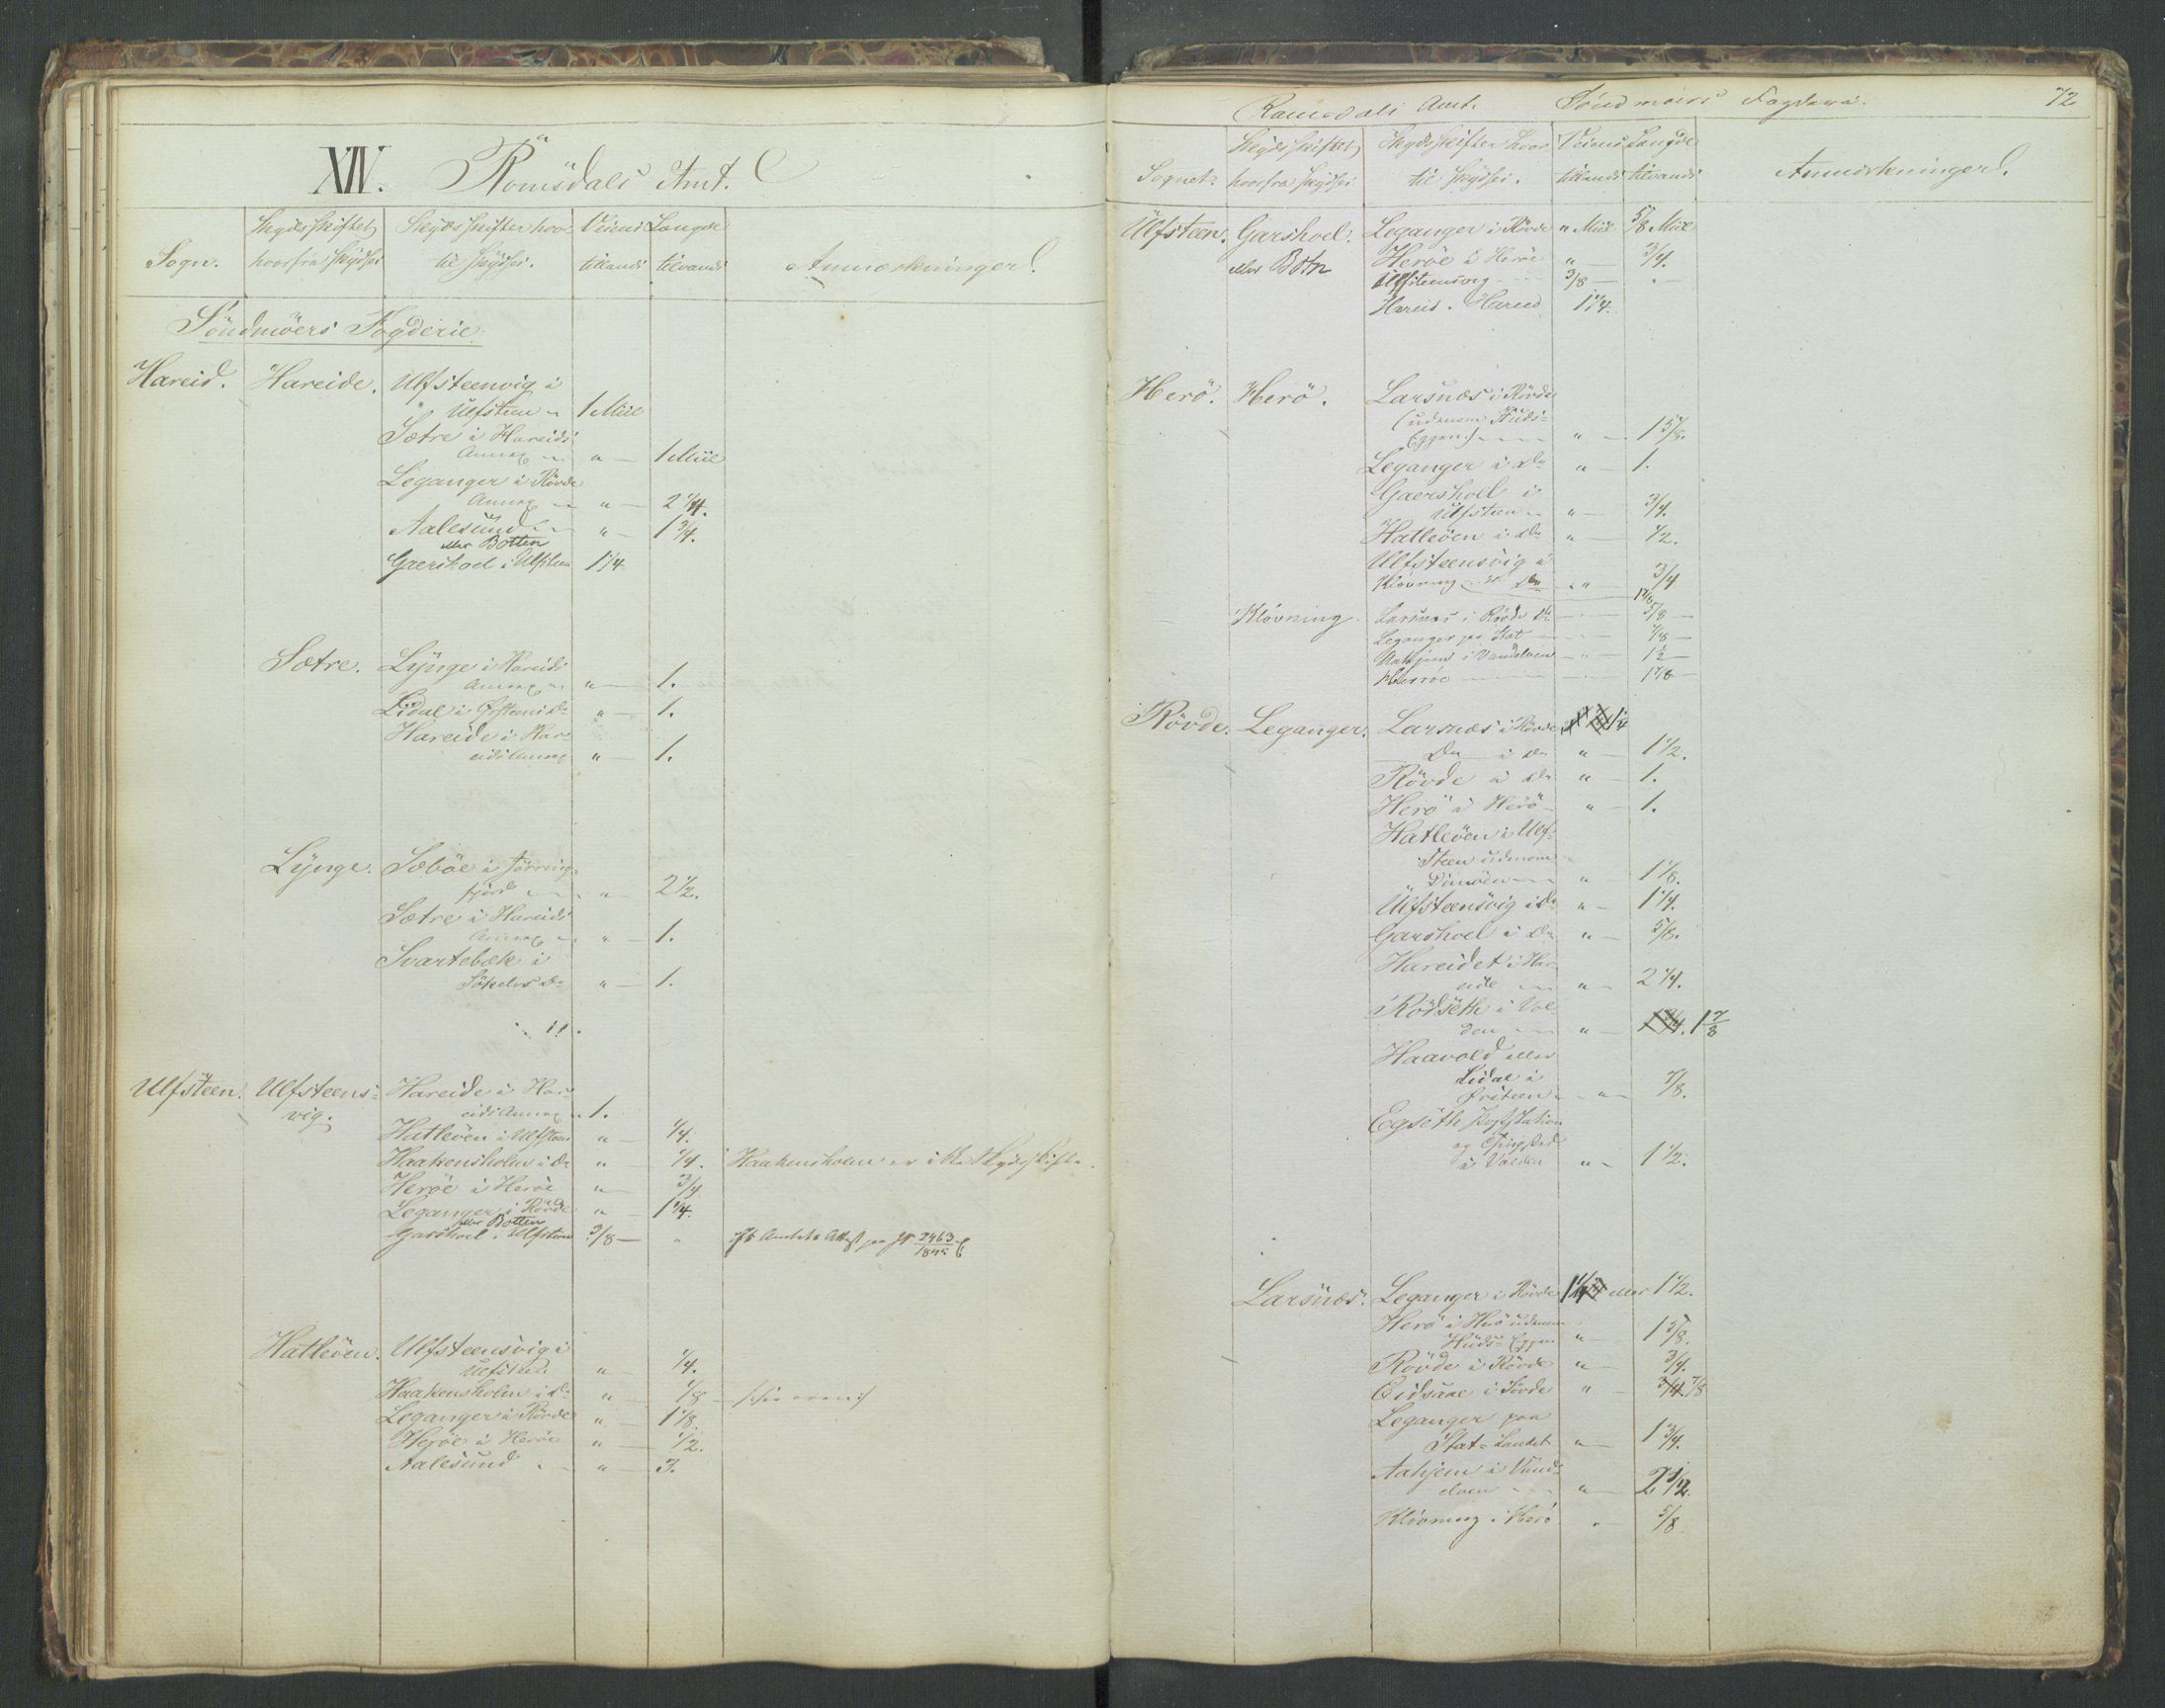 XIV. Romsdals Amt.
Sogn. Skydsskiftet hvorfra skydses Skydsskifter hvor til skydses. Veiens Længde tillands tilvands Anmærkninger.
Söndmöers Fogderie.
Hareid. Hareide. Ulfsteenvig i
Ulfsteen " 1 Miil
Sætre i Hareids
Annex " — 1 Miil
Leganger i Rövde
Annex " — 2 1/4.
Aalesund " — 1 3/4.
eller Botten
Gaershoel i Ulfsteen 1 1/4
Sætre. Lynge i Hareids
Annex " — 1.
Lidal i Örsteen " — 1.
Hareide i Har-
eids Annex " — 1.
Lynge. Sæböe i Jörring-
fjord " 2 1/2.
Sætre i Hareids
Annex " — 1.
Svartebæk i
Sökelvs Do " — 1.
Ulfsteen. Ulfsteens- Hareide i Har-
vig. eids Annex 1.
Hatleöen i Ulfsteen " — 1/4.
Haakensholm i Do " — 1/4. Haakensholm er ikke Skydsskifte.
Heröe i Heröe " — 3/4
Leganger i Rövde " — 1 1/4.
eller Botten
Garshoel i Ulfsteen 3/8 — " Amtets Attest paa 2463/1845
Hatleöen. Ulfsteensvig i
Ulfsteen " — 1/4.
Haakensholm i Do " — 1/8
Leganger i Rövde " — 1 1/8
Heröe i Heröe " — 1/2.
Aalesund " — 3.
Romsdals Amt. Söndmöers Fogderie. 72
Sognet. Skydsskiftet hvorfra skydses Skydsskifter hvor til skydses. Veiens Længde tillands tilvands Anmærkninger.
Ulfsteen. Garshoel. Leganger i Rövde " Miil 5/8 Miil
eller Botn Heröe i Heröe " — 3/4.
Ulfsteensvig 3/8 — " —
Hareid i Hareid 1 1/4.
Herö. Herö. Larsnæs i Rövde
(udenom Huds-
Eggen) " — 1 5/8.
Leganger i Do " — 1.
Gaershoel i
Ulfsteen " — 3/4.
Hatleöen i Do " — 1/2.
Ulfsteensvig i
Do " 3/4
Klövning 1 1/8
Klövning. Larsnæs i Rövde 5/8 —
Leganger paa Stat 7/8 —
Aahjem i Vandelven — " — 1 1/2 —
Herröe 1 1/8 —
Rövde. Leganger. Larsnæs i Rövde 1/4
Do i Do " — 1 1/2.
Rövde i Do " — 1.
Herö i Herö " — 1.
Hatleöen i Ulf-
steen udenom
Dimöen " — 1 1/8.
Ulfsteensvig i Do " — 1 1/4.
Garshoel i Do " — 5/8.
Hareidet i Har-
eide " — 2 1/4.
Rödseth i Vol-
den " — 1 3/4. 1 7/8
Haavold eller
Lidal i
Örsteen " 7/8.
Egseth Poststation
og Thingsted
i Volden " 1 1/2.
Larsnæs. Leganger i Rövde 1/4 eller 1 1/2.
Herö i Herö udenom
Huds-Eggen " — 1 5/8.
Rövde i Rövde " — 3/4.
Eidsaae i Sövde " — 3/4. 7/8
Leganger paa
Stat-Landet " — 1 3/4.
Aahjem i Vand-
elven " — 2 1/2.
Klövning i Herö " — 5/8